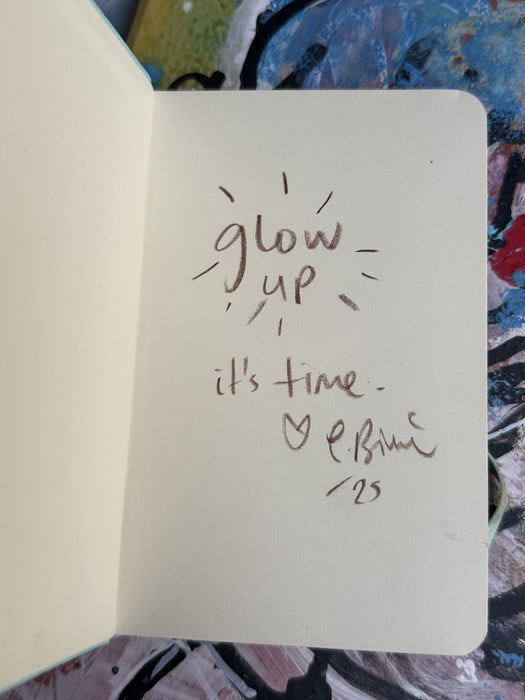 glow
up
it's time.
/25